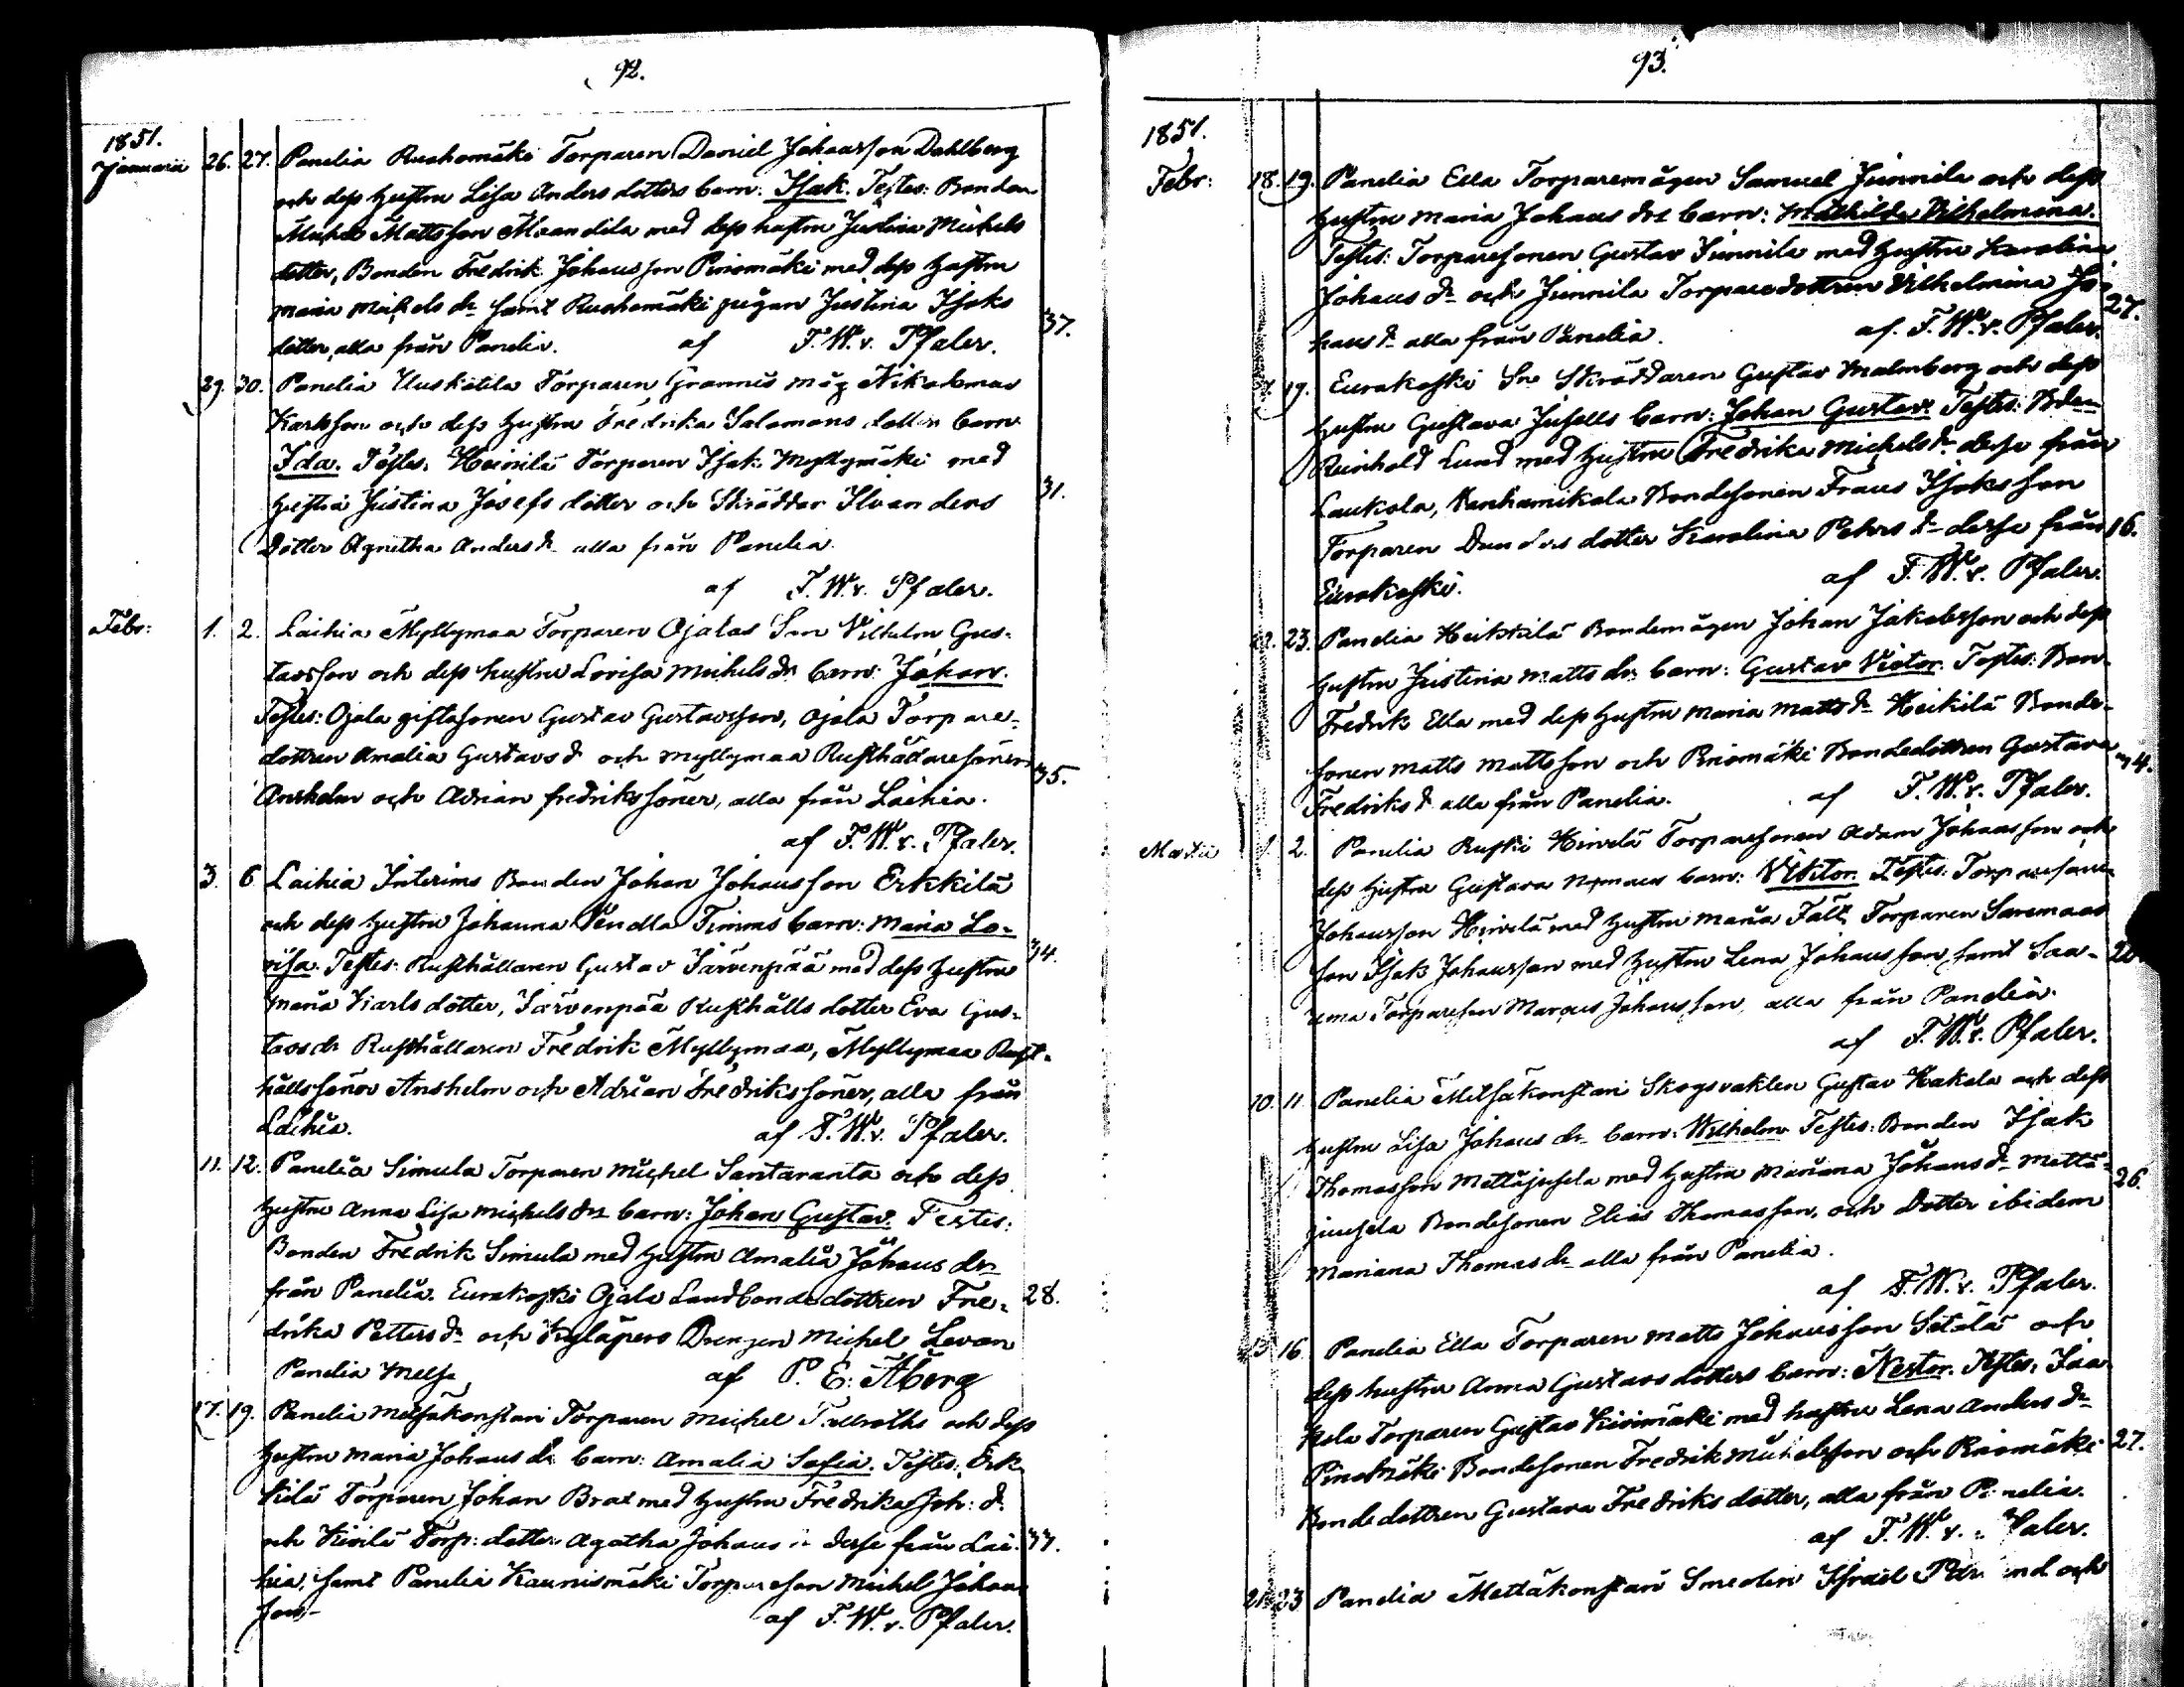 92.
1851.
Januarii 26. 27. Panelia Ruohomäki Torparen Daniel Johansson Dahlberg
och dess hustru Lisa Anders dotters barn: Isak. Testes: Bonden
Michel Mattsson Maandila med dess hustru Justina Michels
dotter, Bonden Fredrik Johansson Riiomäki med dess hustru
Maria Michels dr samt Ruohomäki pigan Justina Isaks
dotter, alla från Panelia. af F. W. v. Pfaler. 37.
29. 30. Panelia Uuskatila Torparen Grannis måg Nikodemus
Karlsson och dess hustru Fredrika Salomons dotters barn
Ida. Testes: Heinilä Torparen Isak Myllymäki med
hustru Justina Josefs dotter och Skräddar Ilvanders 31.
Dotter Agnetha Anders dr alla från Panelia.
af F. W. v. Pfaler.
Febr: 1. 2. Laihia Myllymaa Torparen Ojalas Son Vilhelm Gus-
tavsson och dess hustru Lovisa Michels dr barn: Johan.
Testes: Ojala giftasonen Gustav Gustavsson, Ojala Torpare-
dottren Amalia Gustavs d och Myllymaa Rusthållaresönerne
Anshelm och Adrian fredriks söner, alla från Laihia. 35.
af F. W. v. Pfaler.
3. 6 Laihia Interims Bonden Johan Johansson Erkkilä
och dess hustru Johanna Vendla Timms barn: Maria Lo-
visa. Testes: Rusthållaren Gustav Järvenpää med dess hustru 34.
Maria Karls dotter, Järvenpää Rusthålls dotter Eva Gus-
tavs dr Rusthållaren Fredrik Myllymaa, Myllymaa Rust-
hållssöner Anshelm och Adrian Fredriks söner, alla från
Laihia. af F. W. v. Pfaler.
11. 12. Panelia Simula Torparen Michel Santaranta och dess
hustru Anna Lisa Michels dr barn: Johan Gustav. Testes:
Bonden Fredrik Simula med hustru Amalia Johans dr
från Panelia. Eurakoski Ojala Landbondedottren Fre- 28.
drika Petters dr och Kyläpers Drengen Michel Levon
Panelia Melse af P. E. Åberg
17. 19. Panelia Metsäkonstari Torparen Michel Tallroths och dess
hustru Maria Johans dr barn: Amalia Sofia. Testes: Erk
kilä Torparen Johan Brax med hustru Fredrika Joh: d.
och Kivilä Torp: dotter Agatha Johans dr desse från Lai- 33.
hia, samt Panelia Kaunismäki Torpareson Michel Johans
son - af F. W. v. Pfaler.
93.
1851.
Febr: 18. 19. Panelia Ella Torparemågen Samuel Junnila och dess
hustru Maria Johans dr barn: Mathilda Vilhelmina.
Testes: Torparesonen Gustav Junnila med hustru Karolina
Johans dr och Junnila Torparedottren Vilhelmina Jo- 27.
hans dr alla från Panelia. af. F. W. v. Pfaler.
19. Eurakoski Sn Skräddaren Gustav Malmberg och dess
hustru Gustava Jusells barn: Johan Gustav. Testes: Bden
Reinhold Lund med hustru Fredrika Michels dr desse från
Laukola, Vanhamikola Bondesonen Frans Isaksson
Torparen Danders dotter Karolina Pehrs dr desse från 16.
Eurakoski. af F. W. v. Pfaler.
22. 23. Panelia Heikkilä Bondemågen Johan Jakobsson och dess
hustru Justina Matts dr barn: Gustav Victor. Testes: Bon-
Fredrik Ella med dess hustru Maria Matts dr Heikilä Bonde-
sonen Matts Mattsson och Riiomäki Bondedottren Gustava 34.
Fredriks d. alla från Panelia. af F. W. v. Pfaler.
Martii 1. 2. Panelia Ruski Hirvelä Torparesonen Adam Johansson och
dess hustru Gustava Nyman barn: Viktor. Testes: Torparesonen
Johansson Hirvelä med hustru Maria Fält, Torparen Saremaas
son Isak Johansson med hustru Lena Johansson, samt Saa-
rema Torpareson Marcus Johansson, alla från Panelia.
af F. W. v. Pfaler.
10. 11. Panelia Metsäkonstari Skogsvakten Gustav Hakala och dess
hustru Lisa Johans dr barn: Wilhelm. Testes: Bonden Isak
Thomasson Mettäjusela med hustru Mariana Johans dr Mettä- 26.
juusela Bondesonen Elias Thomasson, och Dotter ibidem
Mariana Thomas dr alla från Panelia.
af F. W. v. Pfaler.
15 16. Panelia Ella Torparen Matts Johansson Sitälä och
dess hustru Anna Gustavs dotters barn: Nestor. Testes: Jaa
kola Torparen Gustav Kivimäki med hustru Lena Anders dr
Pinomäki Bondesonen Fredrik Michelsson och Riiomäki 27.
Bondedottren Gustava Fredriks dotter, alla från Panelia.
af F. W. v. Pfaler.
21. 23 Panelia Mettäkonstari Smeden Israel och